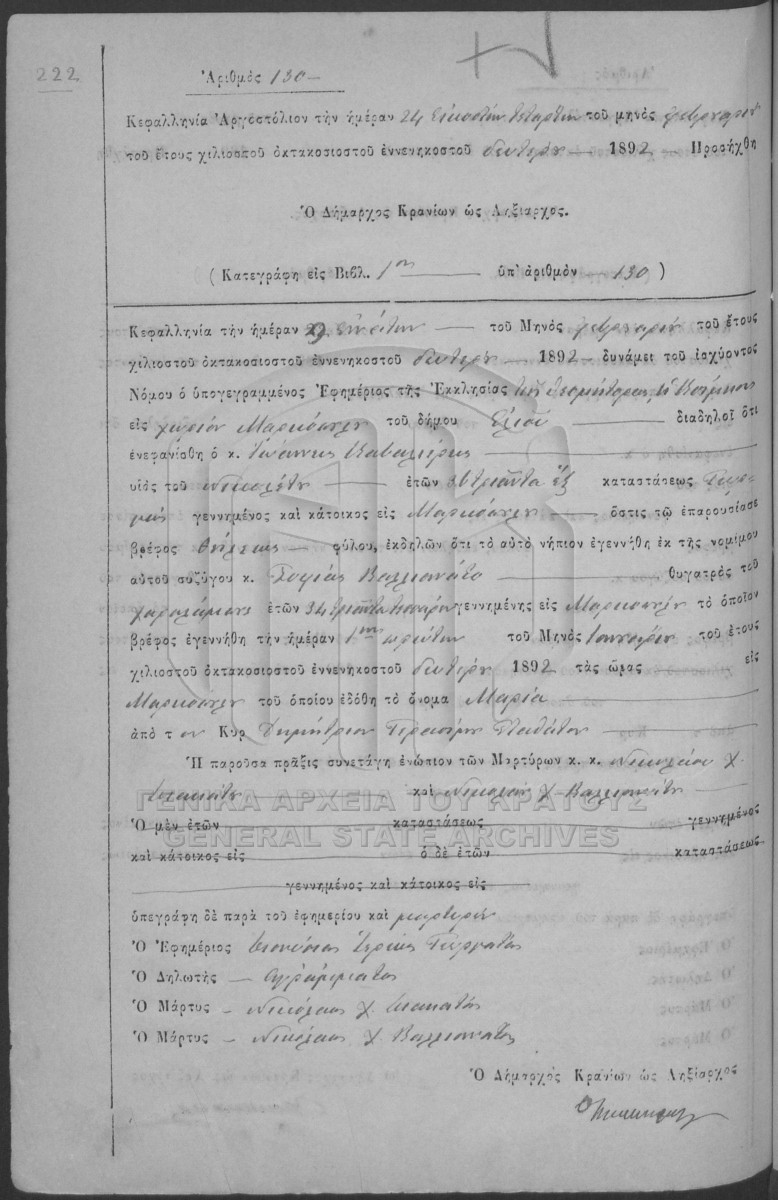 222
Ἀριθμός 130
Κεφαλληνία Ἀργοστόλιον τὴν ἡμέραν 24 εἰκοστὴν τετάρτην τοῦ μηνὸς Φεβρουαρίου
τοῦ ἔτους χιλιοστοῦ ὀκτακοσιοστοῦ ἐννενηκοστοῦ δευτέρου 1892 Προσήχθη
Ὁ Δήμαρχος Κρανίων ὡς Ληξίαρχος.
(Κατεγράφη εἰς Βιβλ. 1ον ὑπ' ἀριθμὸν 130)
Κεφαλληνία τὴν ἡμέραν τοῦ Μηνὸς Φεβρουαρίου τοῦ ἔτους
χιλιοστοῦ ὀκτακοσιοστοῦ ἐννενηκοστοῦ δευτέρου 1892 δυνάμει τοῦ ἰσχύοντος
Νόμου ὁ ὑπογεγραμμένος Ἐφημέριος τῆς Ἐκκλησίας
εἰς χωρίον Μαρκόπουλον τοῦ δήμου Ἐλιοῦ διαδηλοῖ ὅτι
ἐνεφανίσθη ὁ κ. Ἰωάννης
υἱὸς τοῦ Νικολέτου ἐτῶν 36 τριάντα ἕξ καταστάσεως Γεωρ
γὸς γεννημένος καὶ κάτοικος εἰς Μαρκόπουλον ὅστις τῷ ἐπαρουσίασε
βρέφος θήλεως φύλου, ἐκδηλῶν ὅτι τὸ αὐτὸ νήπιον ἐγεννήθη ἐκ τῆς νομίμου
αὐτοῦ συζύγου κ. Σοφίας Βαλλιανάτο θυγατρὸς τοῦ
Χαραλάμπους ἐτῶν 34 τριάντα τεσσάρων γεννημένης εἰς Μαρκόπουλον τὸ ὁποῖον
βρέφος ἐγεννήθη τὴν ἡμέραν 1ην πρώτην τοῦ Μηνὸς Ἰανουαρίου τοῦ ἔτους
χιλιοστοῦ ὀκτακοσιοστοῦ ἐννενηκοστοῦ δευτέρου 1892 τὰς ὥρας εἰς
Μαρκόπουλον τοῦ ὁποίου ἐδόθη τὸ ὄνομα Μαρία
ἀπὸ τον Κυρ Δημήτριον Γερασίμου Σταθάτον
Ἡ παροῦσα πρᾶξις συνετάγη ἐνώπιον τῶν Μαρτύρων κ. κ. Νικολάου Χ.
καὶ Νικολάου Χ. Βαλλιανάτου
ΓΕΝΙΚΑ ΑΡΧΕΙΑ ΤΟΥ ΚΡΑΤΟΥΣ
Ὁ μὲν ἐτῶν καταστάσεως γεννημένος
GENERAL STATE ARCHIVES
καὶ κάτοικος εἰς ὁ δὲ ἐτῶν καταστάσεως
γεννημένος καὶ κάτοικος εἰς
ὑπεγράφη δὲ παρὰ τοῦ ἐφημερίου καὶ μαρτύρων
Ὁ Ἐφημέριος Διονύσιος Ἱερεὺς Γεωργάτος
Ὁ Δηλωτής Ἀγράμματος
Ὁ Μάρτυς Νικόλαος Χ.
Ὁ Μάρτυς Νικόλαος Χ. Βαλλιανάτος
Ὁ Δήμαρχος Κρανίων ὡς Ληξίαρχος